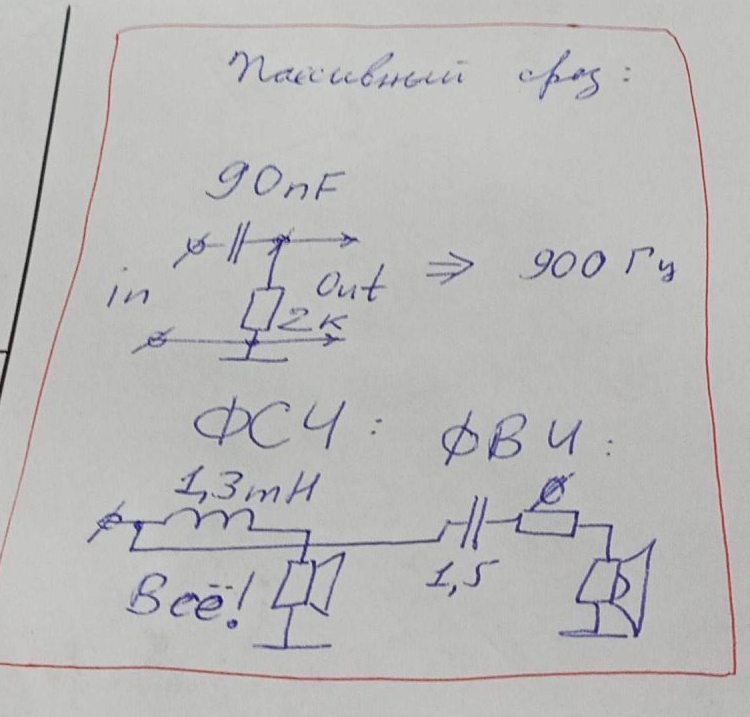 Пассивный срез:
90nF
in
Out
2к
⇒ 900 Гц
ФСЧ:
ФВЧ:
1,3mH
Ø
1,5
Всё!